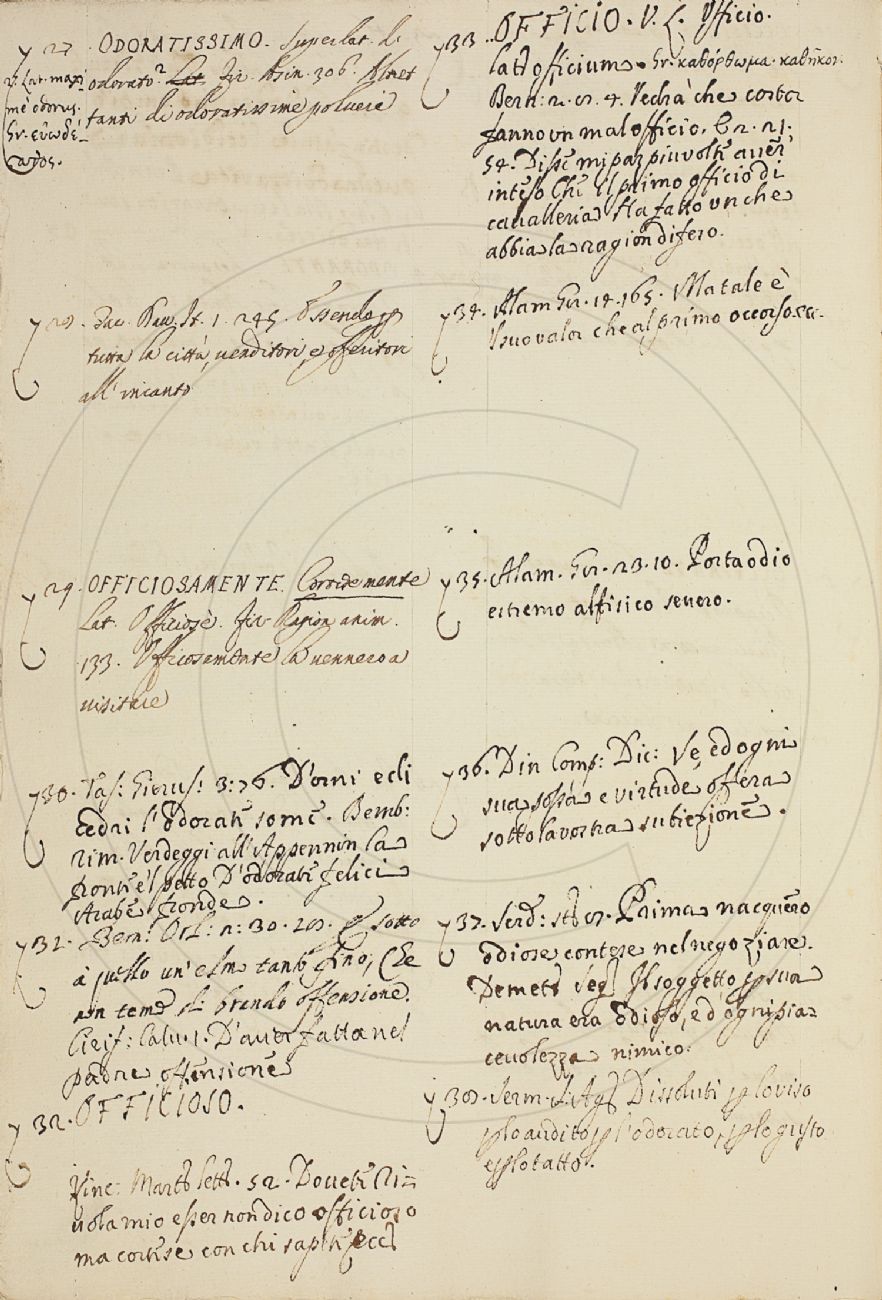 27. ODORATISSIMO. Superlat. di
odorato. Lat. Fir. Asin. 306.
tanti di odoratissime polueri
V. Lat. maxi
mè odorus.
Gr. εὐωδέ-
στατος.
28. Dau. St. 1. 245. Essendo p
tutta la città, uenditori, e offeritori
all' incanto
29. OFFICIOSAMENTE. Cortesemente
Lat. Officiosè. Fir. Ragion. anim.
133. Officiosamente la uennero a
uisitare
30. Tas: Gierus: 3: 76. D'orni e di
cedri l'odorate some. Bemb:
rim. Verdeggi all' Appennin la
fronte e'l petto D'odorate felici
Arabe fronde.
31. Bern: Orl: 2: 30. 28. E sotto
à quello un' elmo tanto fino, Che
non teme di brando offensione.
Ciriff: Calu: 1. D'auer fatta nel
padre offensione
32. OFFICIOSO.
Vinc: Mart. lett. 52. Douete Ri=
uola mio esser non dico officioso
ma cortese con chi sapete ecc
33. OFFICIO. V. L. Vfficio.
lat. officium. Gr. κατόρθωμα. καθῆκον.
Bern: 2. 4. Vedrà che costor
fanno vn mal officio. E 2. 21.
54. Disse mi par piu volte auer'
inteso Che il primo officio di
caualleria Sta fatto vn che
abbia la ragion di fero.
34. Alam. Gir. 14. 165. Ma tale è
'l suo valor che al primo occorso ec.
35. Alam. Gir. 23. 10. Porta odio
estremo al fisico seuero.
36. Din Comp: Dic: Ve, ed ogni
sua possa e virtude offera
sotto la vostra subiezione.
37. Serd: st. Prima nacquero
odiose contese nel negoziare.
Demetr. Seg. Il soggetto p sua
natura era odioso, ed ogni pia=
ceuolezza nimico.
38. Serm. S. Ag. Dissoluti p lo viso
p lo audito p l'odorato, p lo gusto
e p lo tatto.